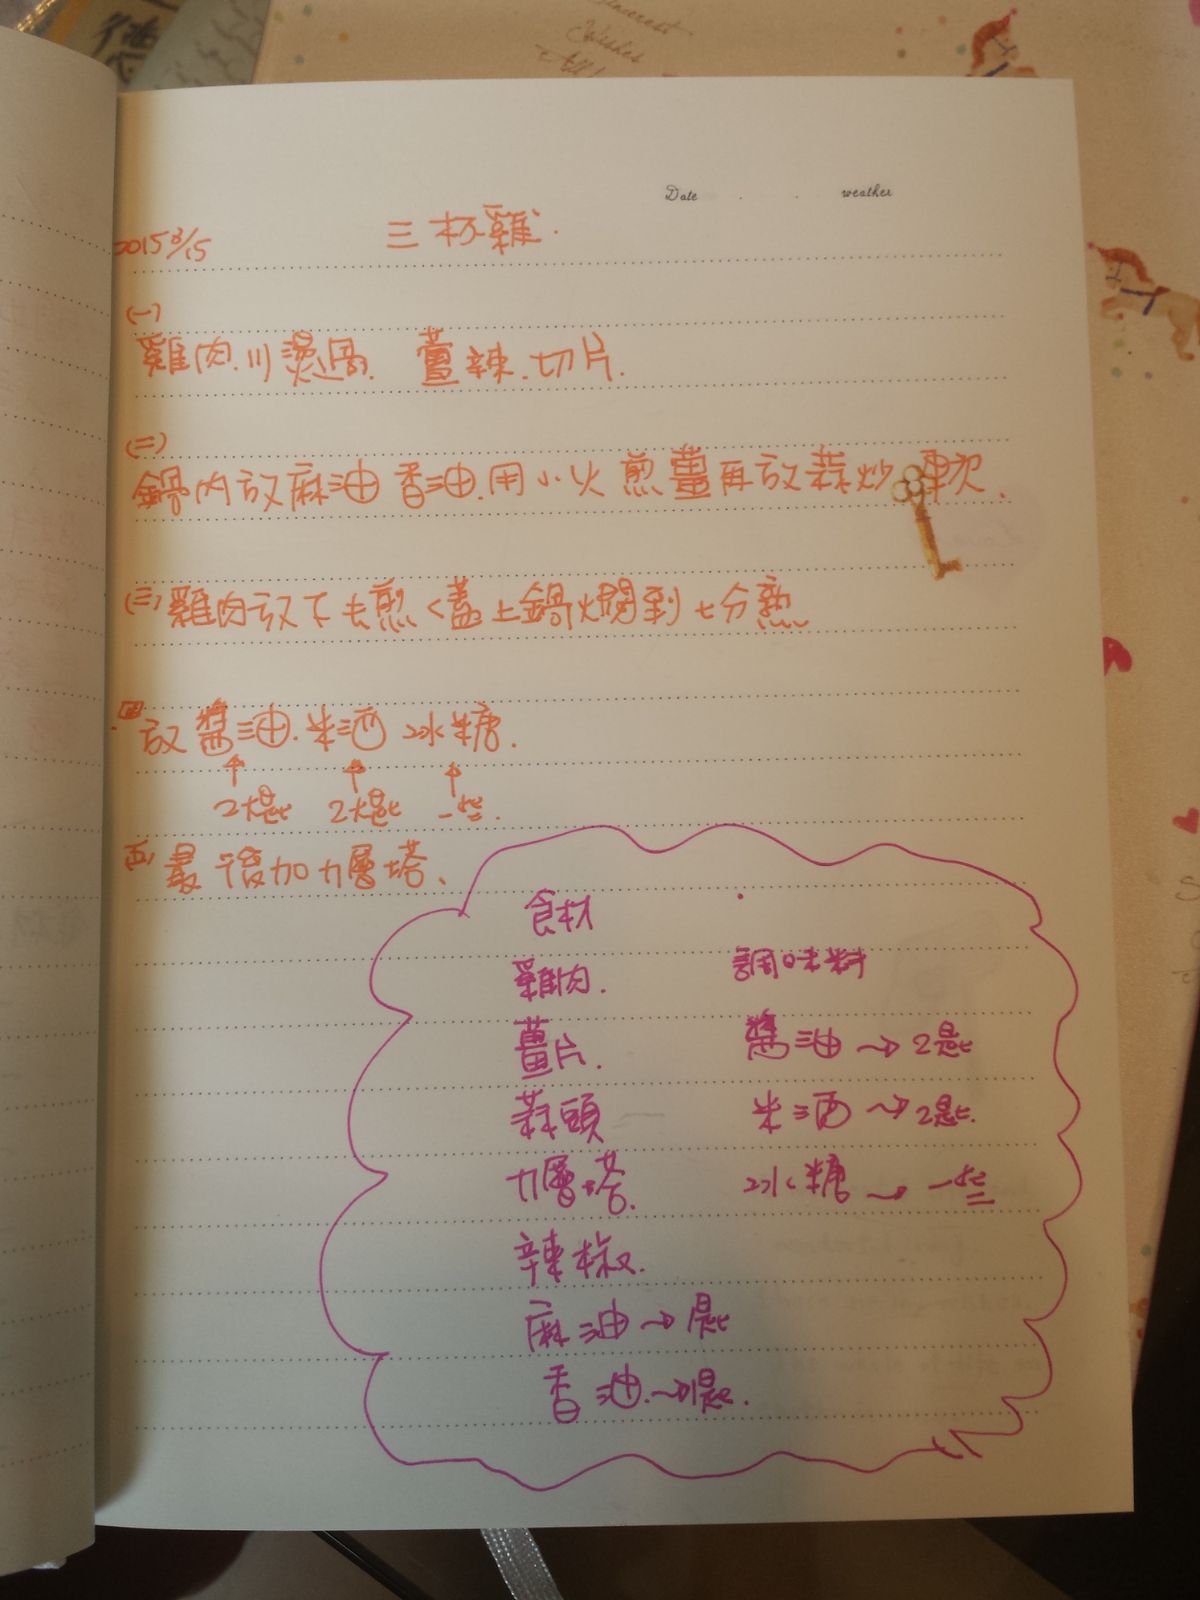 Date . . weather
2015 3/15 三杯雞.
(一)
雞肉.川燙過. 薑辣.切片.
(二)
鍋內放麻油香油.用小火煎薑再放蒜炒 軟.
(三)雞肉放下去煎<蓋上鍋燜到七分熟
四 放醬油.米酒 冰糖.
↑ ↑ ↑
2大匙 2大匙 一些.
五 最後加九層塔、
食材
雞肉.
薑片.
蒜頭
九層塔.
辣椒.
麻油→1匙
香油.→1匙.
調味料
醬油→2匙
米酒→2匙.
冰糖→一些